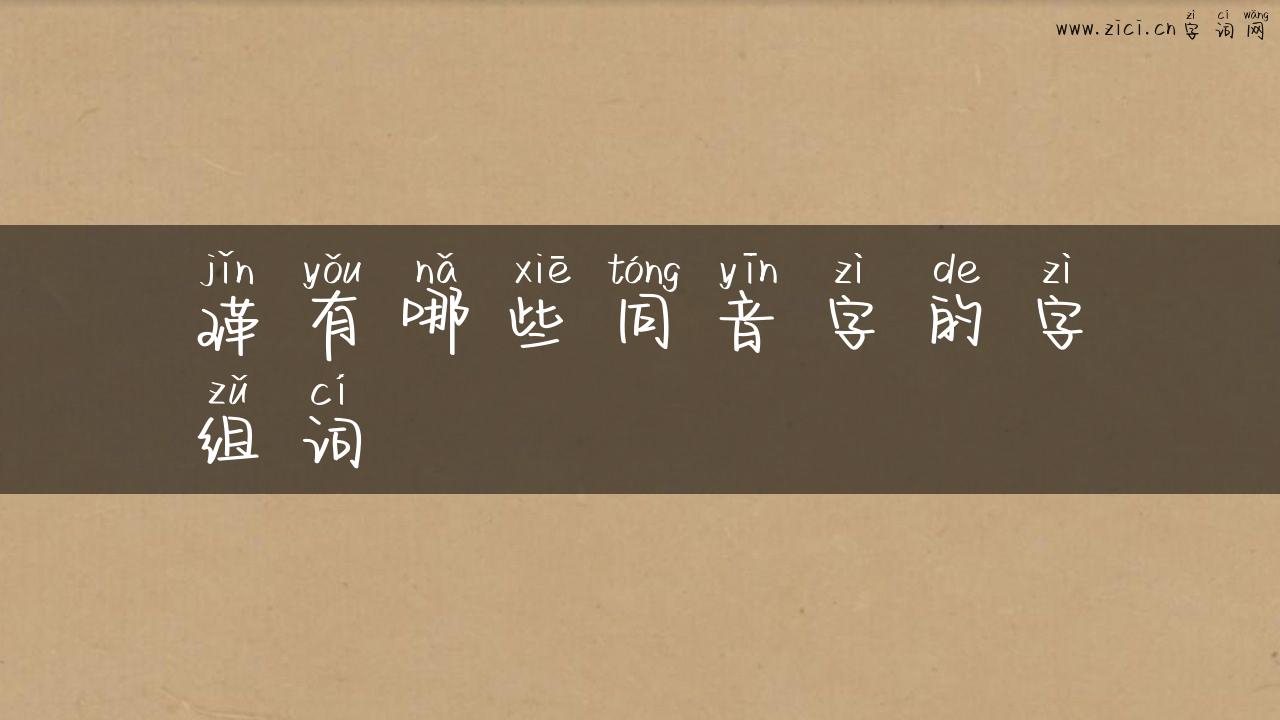 www.zici.cn 字词网
zì cí wǎng
jǐn yǒu nǎ xiē tóng yīn zì de zì
瑾有哪些同音字的字
zǔ cí
组词